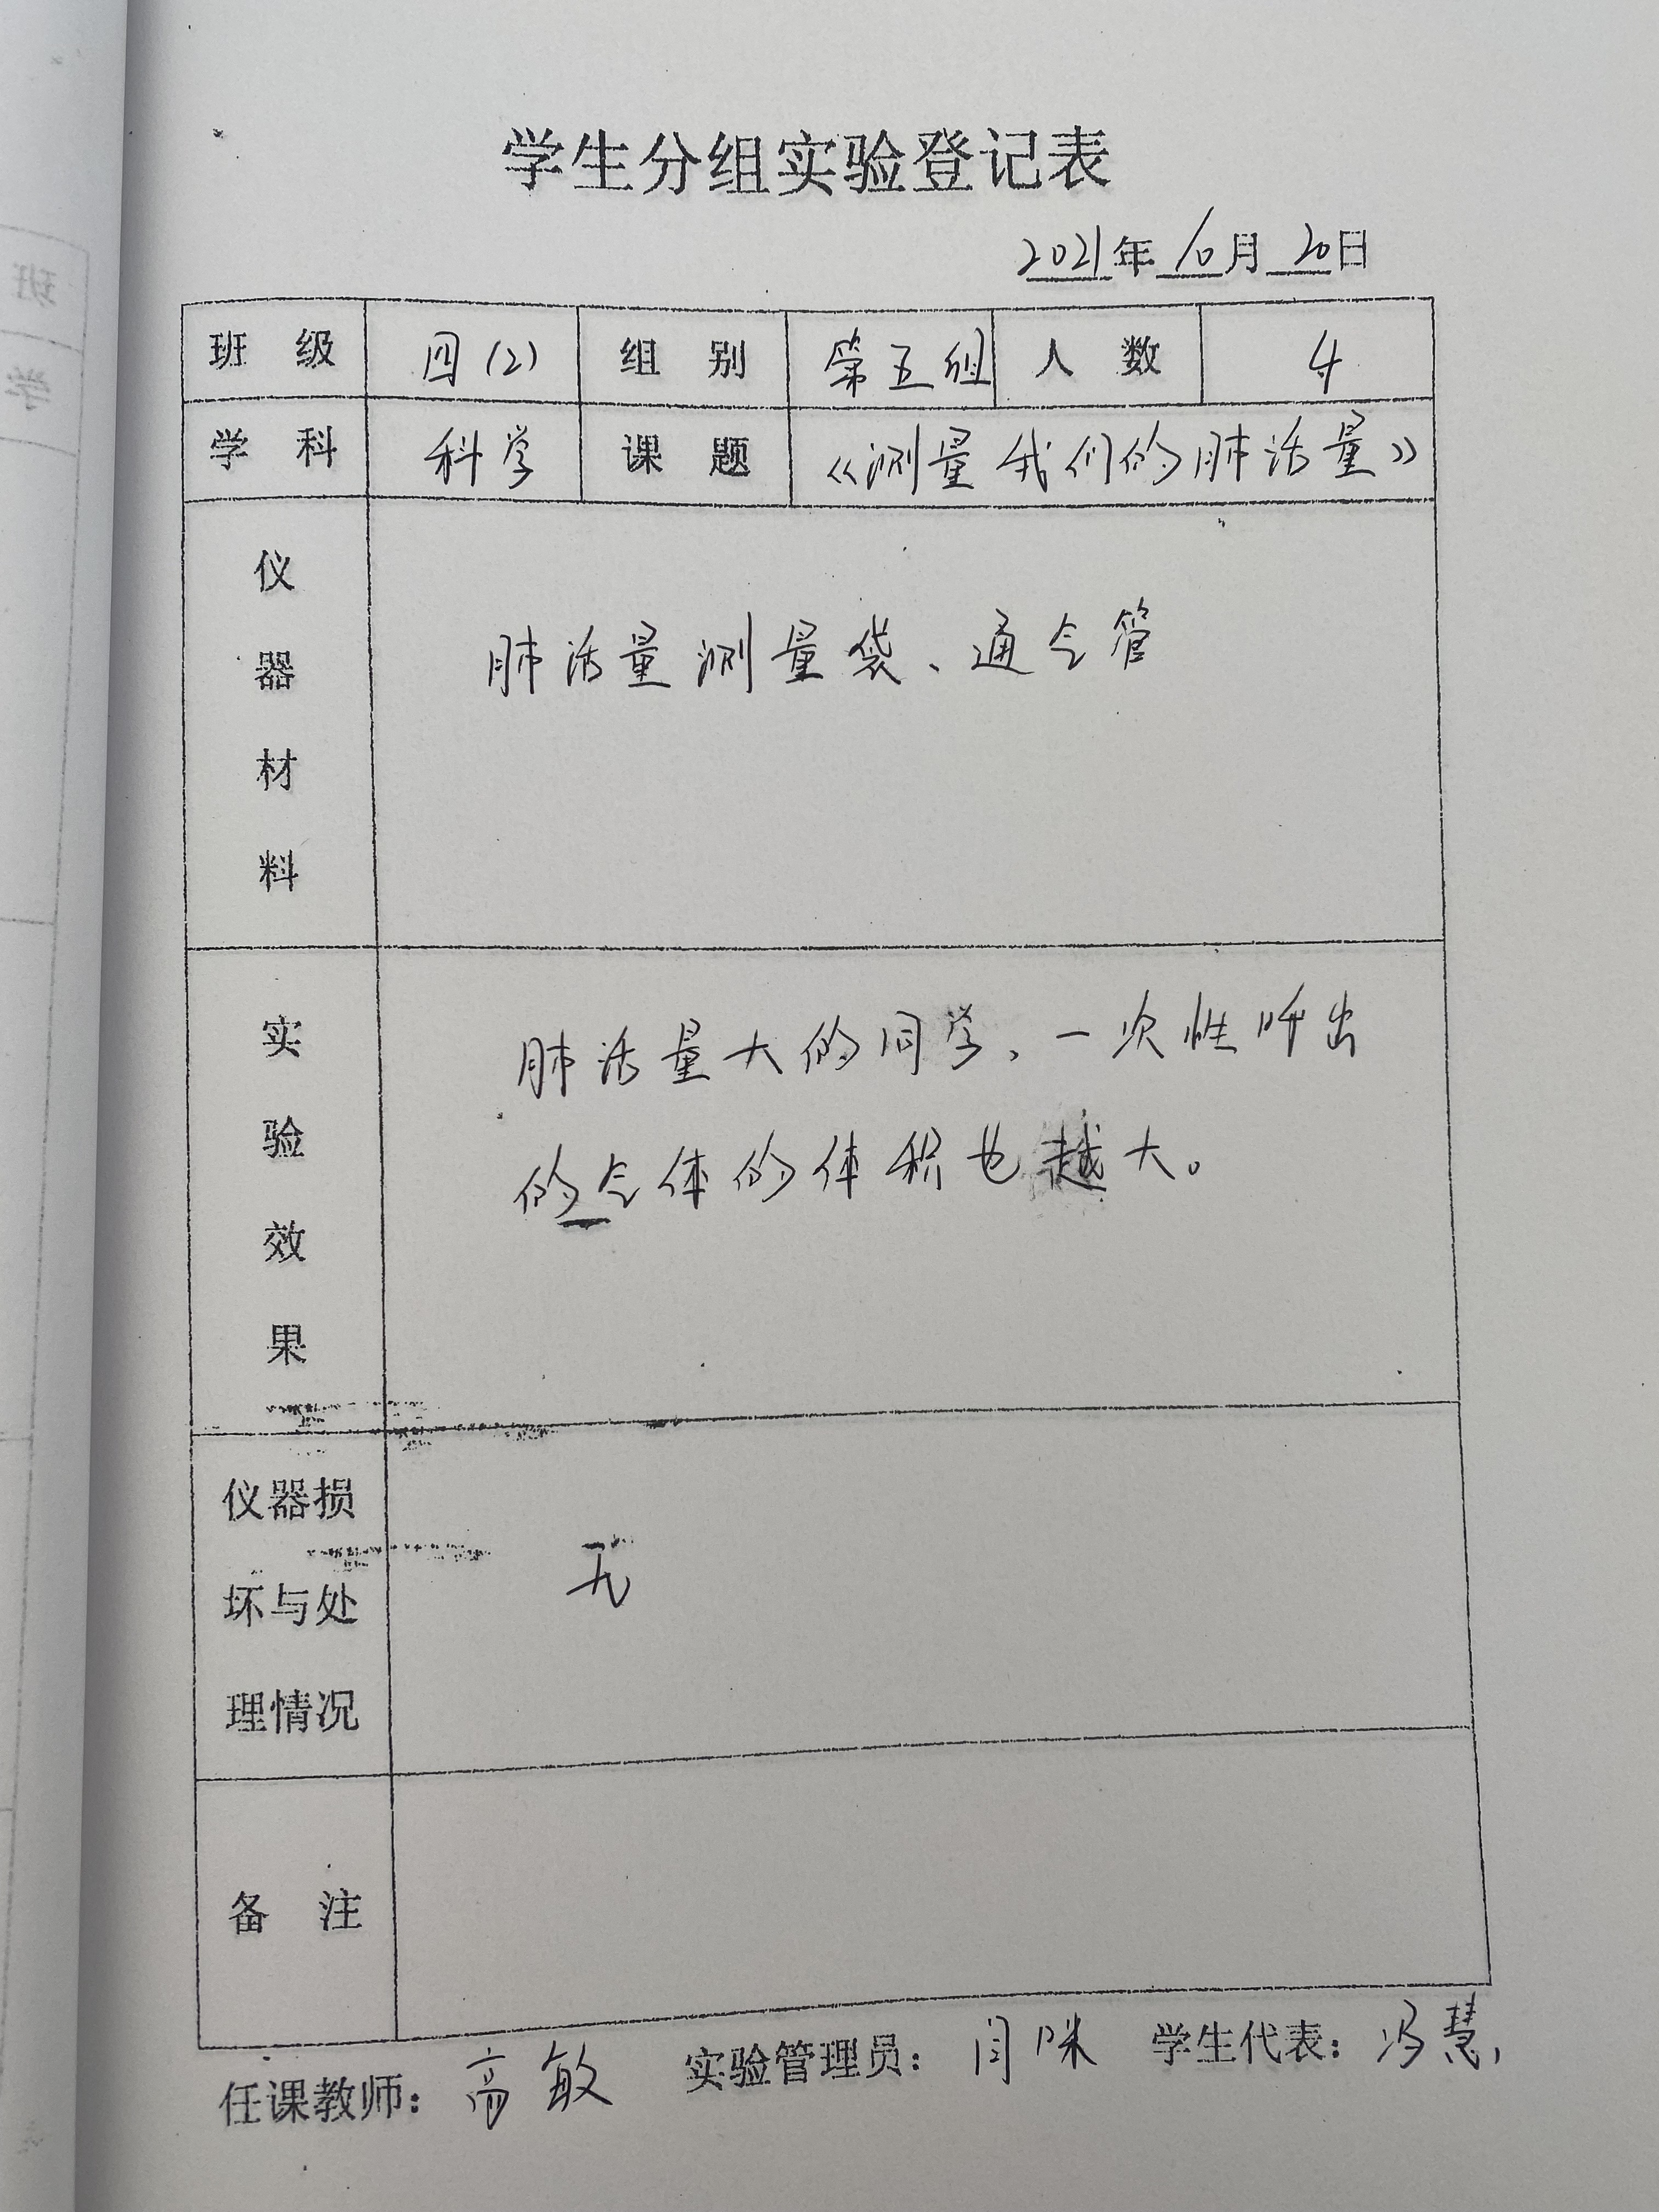 学生分组实验登记表
2021年10月20日
班级 四(2) 组别 第五组 人数 4
学科 科学 课题 《测量我们的肺活量》
仪器材料 肺活量测量袋、通气管
实验效果 肺活量大的同学,一次性呼出
的气体的体积也越大。
仪器损
坏与处 无
理情况
备注
任课教师:高敏 实验管理员:闫咪 学生代表:冯慧
班
学